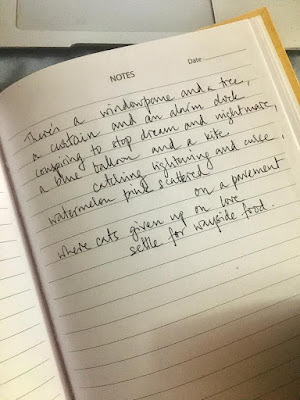 NOTES
Date
There's a windowpane and a tree,
a curtain and an alarm clock
conspiring to stop dream and nightmare,
a blue balloon and a kite
catching lightning and curse,
watermelon pink scattered
on a pavement
where cats given up on love,
settle for wayside food.